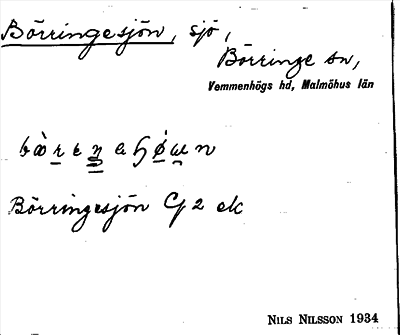 Börringesjön, sjö,
Börringe sn,
Vemmenhögs hd, Malmöhus län
Börringesjön G 2 ek
NILS NILSSON 1934